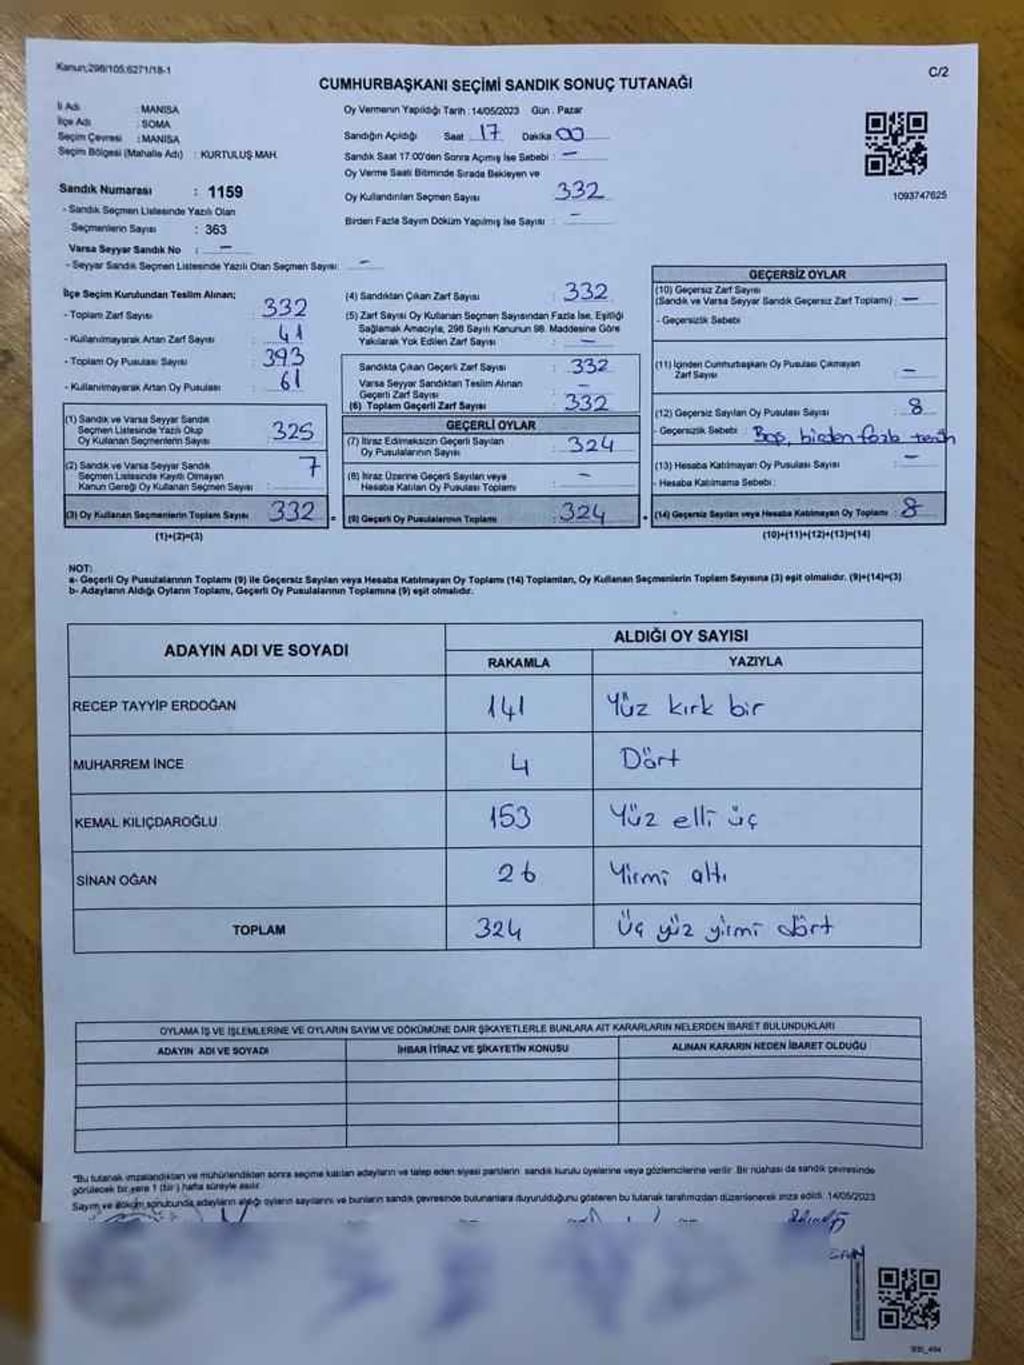 Kanun;298/105.6271/18-1
C/2
CUMHURBAŞKANI SEÇİMİ SANDIK SONUÇ TUTANAĞI
İl Adı : MANİSA
İlçe Adı : SOMA
Seçim Çevresi : MANİSA
Seçim Bölgesi (Mahalle Adı) : KURTULUŞ MAH.
Sandık Numarası : 1159
- Sandık Seçmen Listesinde Yazılı Olan
Seçmenlerin Sayısı : 363
Varsa Seyyar Sandık No : -
- Seyyar Sandık Seçmen Listesinde Yazılı Olan Seçmen Sayısı: -
Oy Vermenin Yapıldığı Tarih : 14/05/2023 Gün : Pazar
Sandığın Açıldığı Saat 17 Dakika 00
Sandık Saat 17:00'den Sonra Açımış İse Sebebi : -
Oy Verme Saati Bitiminde Sırada Bekleyen ve
Oy Kullandırılan Seçmen Sayısı 332
Birden Fazla Sayım Döküm Yapılmış İse Sayısı : -
1093747625
İlçe Seçim Kurulundan Teslim Alınan;
- Toplam Zarf Sayısı : 332
- Kullanılmayarak Artan Zarf Sayısı : 41
- Toplam Oy Pusulası Sayısı : 393
- Kullanılmayarak Artan Oy Pusulası : 61
(1) Sandık ve Varsa Seyyar Sandık
Seçmen Listesinde Yazılı Olup
Oy Kullanan Seçmenlerin Sayısı : 325
(2) Sandık ve Varsa Seyyar Sandık
Seçmen Listesinde Kayıtlı Olmayan
Kanun Gereği Oy Kullanan Seçmen Sayısı : 7
(3) Oy Kullanan Seçmenlerin Toplam Sayısı : 332
(1)+(2)=(3)
(4) Sandıktan Çıkan Zarf Sayısı : 332
(5) Zarf Sayısı Oy Kullanan Seçmen Sayısından Fazla İse, Eşitliği
Sağlamak Amacıyla, 298 Sayılı Kanunun 98. Maddesine Göre
Yakılarak Yok Edilen Zarf Sayısı : -
Sandıkta Çıkan Geçerli Zarf Sayısı : 332
Varsa Seyyar Sandıktan Teslim Alınan
Geçerli Zarf Sayısı : -
(6) Toplam Geçerli Zarf Sayısı : 332
GEÇERLİ OYLAR
(7) İtiraz Edilmeksizin Geçerli Sayılan
Oy Pusulalarının Sayısı : 324
(8) İtiraz Üzerine Geçerli Sayılan veya
Hesaba Katılan Oy Pusulası Toplamı : -
(9) Geçerli Oy Pusulalarının Toplamı : 324
GEÇERSİZ OYLAR
(10) Geçersiz Zarf Sayısı
(Sandık ve Varsa Seyyar Sandık Geçersiz Zarf Toplamı) : -
- Geçersizlik Sebebi :
(11) İçinden Cumhurbaşkanı Oy Pusulası Çıkmayan
Zarf Sayısı : -
(12) Geçersiz Sayılan Oy Pusulası Sayısı : 8
- Geçersizlik Sebebi : Boş, birden fazla tercih
(13) Hesaba Katılmayan Oy Pusulası Sayısı : -
- Hesaba Katılmama Sebebi :
(14) Geçersiz Sayılan veya Hesaba Katılmayan Oy Toplamı : 8
(10)+(11)+(12)+(13)=(14)
NOT:
a- Geçerli Oy Pusulalarının Toplamı (9) ile Geçersiz Sayılan veya Hesaba Katılmayan Oy Toplamı (14) Toplamları, Oy Kullanan Seçmenlerin Toplam Sayısına (3) eşit olmalıdır. (9)+(14)=(3)
b- Adayların Aldığı Oyların Toplamı, Geçerli Oy Pusulalarının Toplamına (9) eşit olmalıdır.
ADAYIN ADI VE SOYADI
ALDIĞI OY SAYISI
RAKAMLA YAZIYLA
RECEP TAYYİP ERDOĞAN 141 Yüz kırk bir
MUHARREM İNCE 4 Dört
KEMAL KILIÇDAROĞLU 153 Yüz elli üç
SİNAN OĞAN 26 Yirmi altı
TOPLAM 324 Üç yüz yirmi dört
OYLAMA İŞ VE İŞLEMLERİNE VE OYLARIN SAYIM VE DÖKÜMÜNE DAİR ŞİKAYETLERLE BUNLARA AİT KARARLARIN NELERDEN İBARET BULUNDUKLARI
ADAYIN ADI VE SOYADI İHBAR İTİRAZ VE ŞİKAYETİN KONUSU ALINAN KARARIN NEDEN İBARET OLDUĞU
"Bu tutanak imzalandıktan ve mühürlendikten sonra seçime katılan adayların ve talep eden siyasi partilerin sandık kurulu üyelerine veya gözlemcilerine verilir. Bir nüshası da sandık çevresinde
görülecek bir yere 1 (bir) hafta süreyle asılır.
Sayım ve döküm sonubunda adayların aldığı oyların sayılarını ve bunların sandık çevresinde bulunanlara duyurulduğunu gösteren bu tutanak tarafımızdan düzenlenerek imza edildi. 14/05/2023